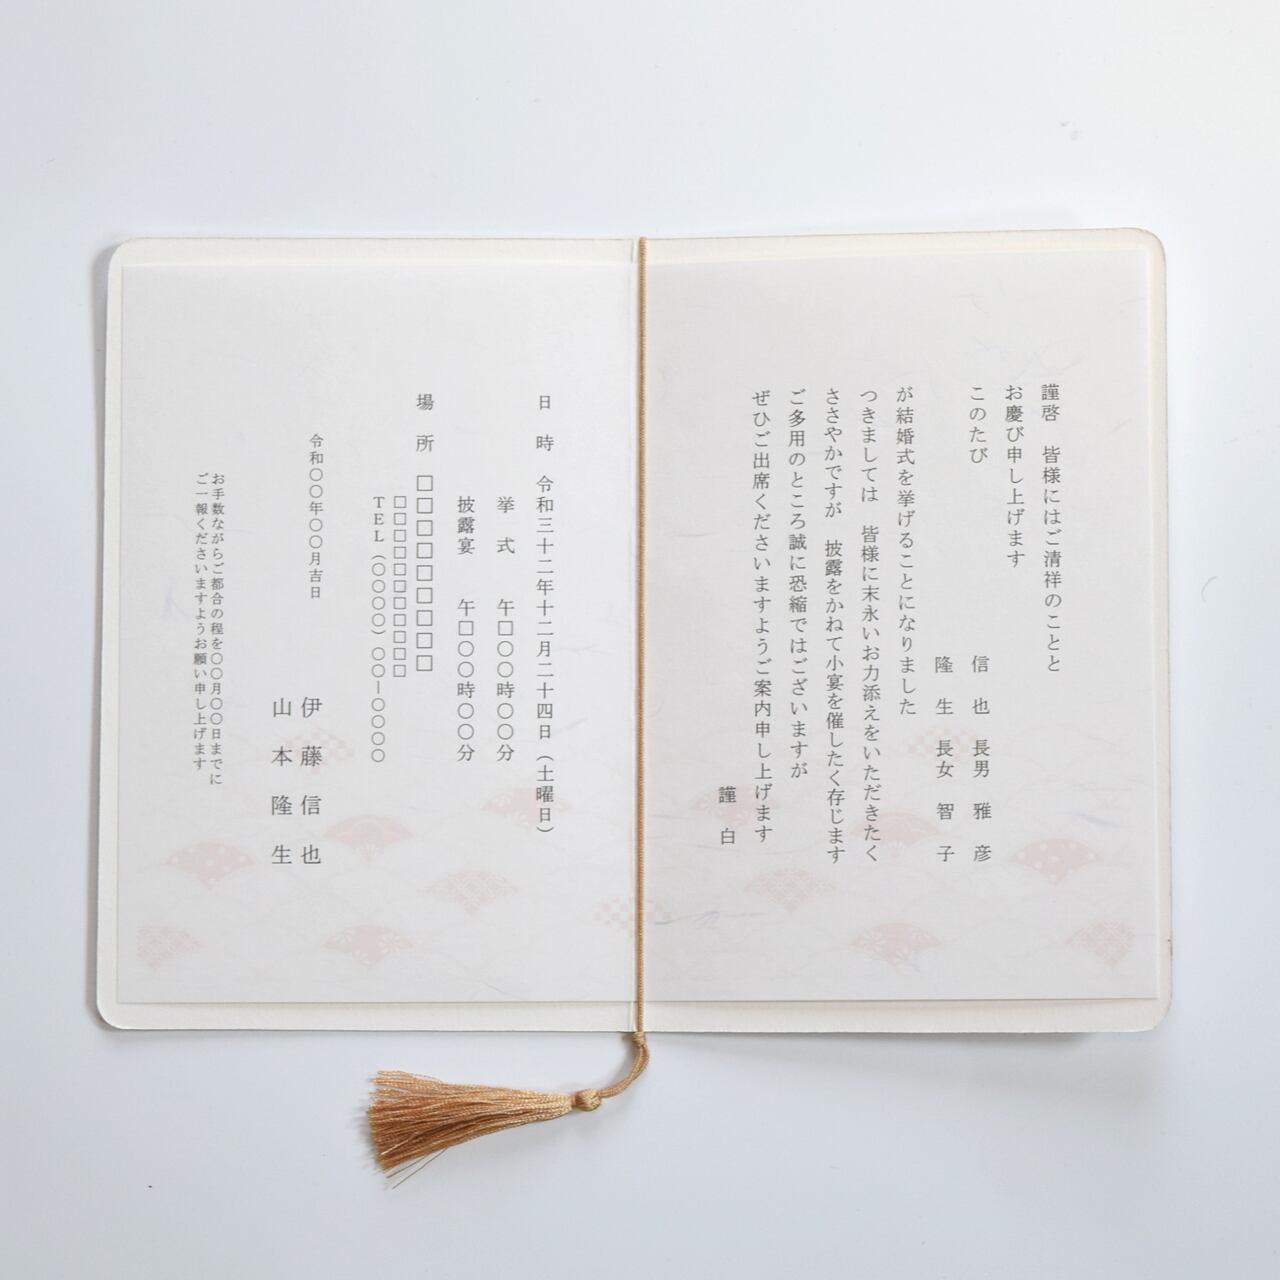 謹啓　皆様にはご清祥のことと
お慶び申し上げます
このたび
信也　長男　雅彦
隆生　長女　智子
が結婚式を挙げることになりました
つきましては　皆様に末永いお力添えをいただきたく
ささやかですが　披露をかねて小宴を催したく存じます
ご多用のところ誠に恐縮ではございますが
ぜひご出席くださいますようご案内申し上げます
謹　白
日　時　令和三十二年十二月二十四日（土曜日）
挙　式　午□〇〇時〇〇分
披露宴　午□〇〇時〇〇分
場　所　□□□□□□□□□
□□□□□□□□□□
TEL（〇〇〇〇）〇〇ー〇〇〇〇
令和〇〇年〇〇月吉日
伊藤信也
山本隆生
お手数ながらご都合の程を〇〇月〇〇日までに
ご一報くださいますようお願い申し上げます